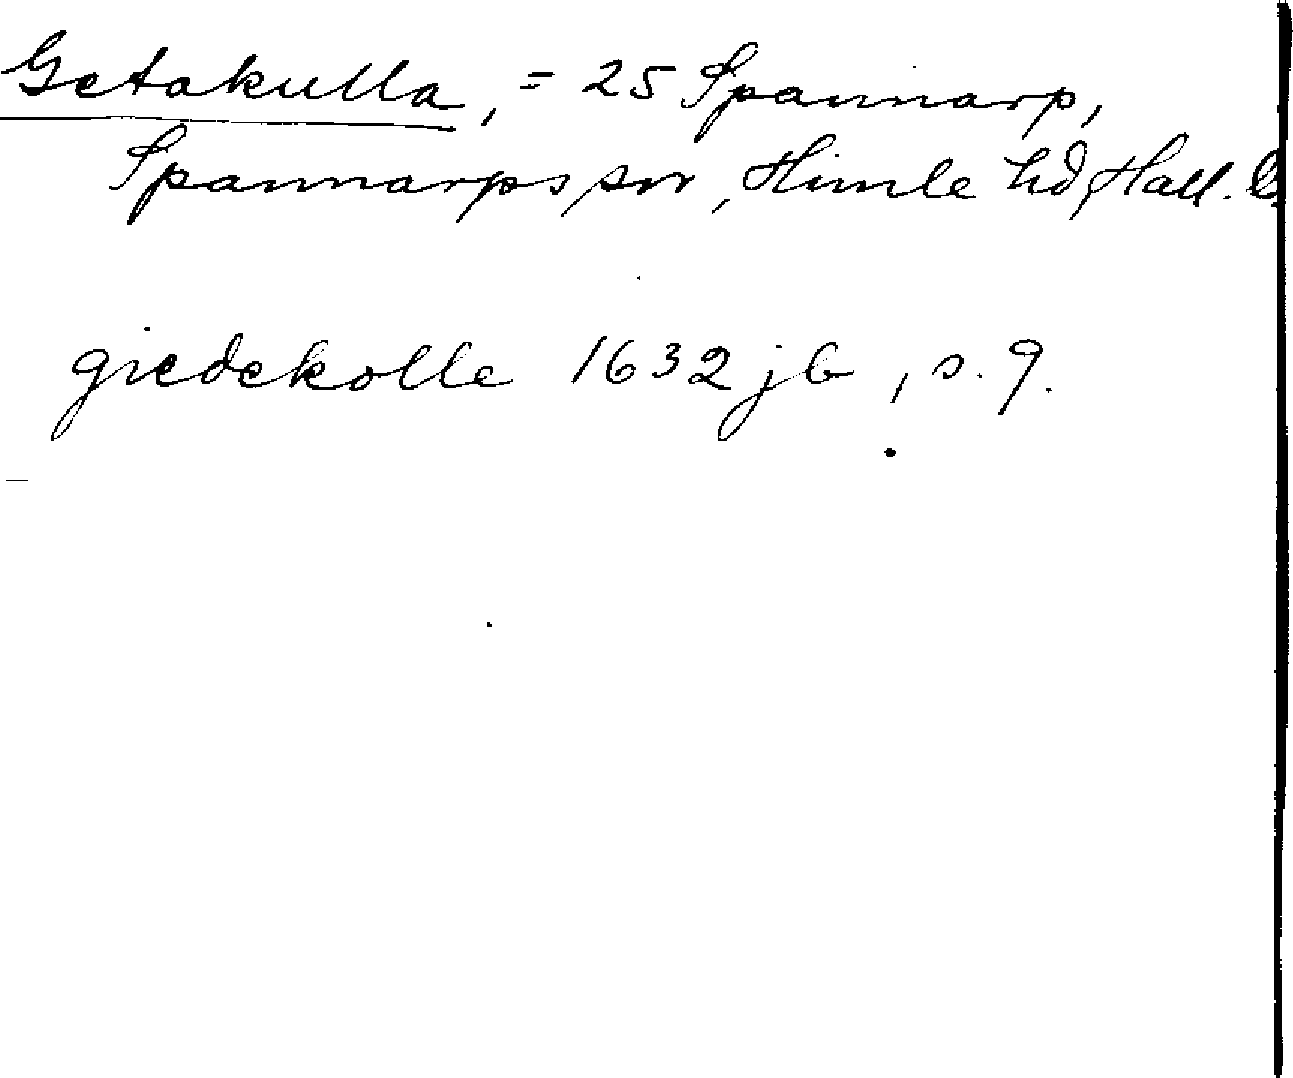 Getakulla, = 25 Spannarp,
Spannarps sn, Himle hd, Hall. l.
giedekolle 1632 jb, s. 9.